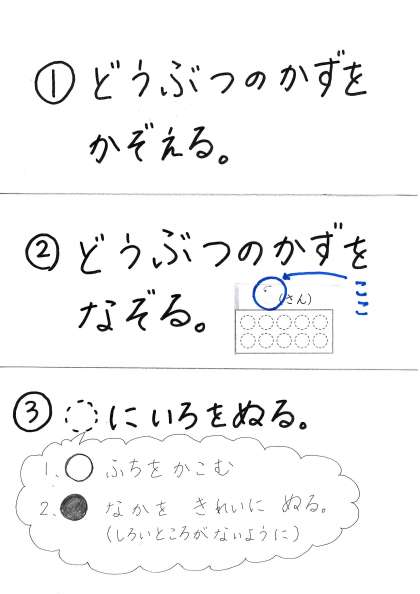 ① どうぶつのかずを
かぞえる。
② どうぶつのかずを
なぞる。
ここ
(さん)
③ にいろをぬる。
1. ふちをかこむ
2. なかを きれいに ぬる。
(しろいところがないように)